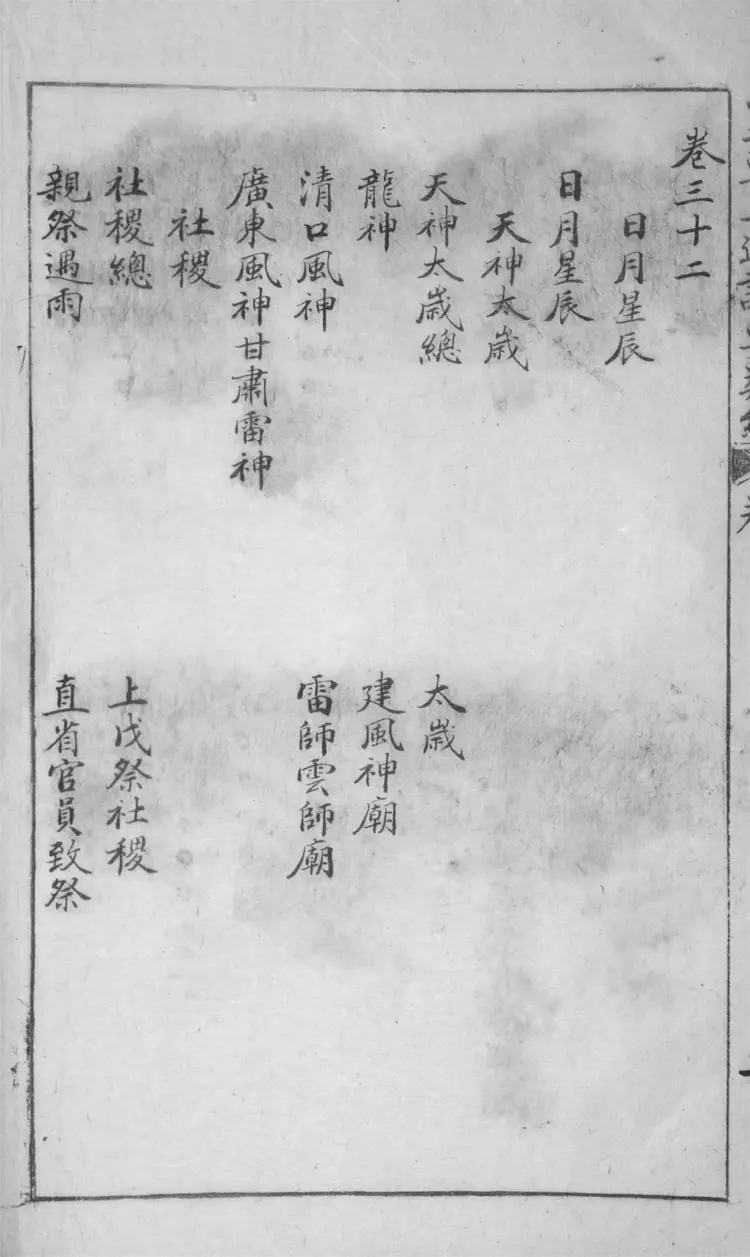 卷三十二
日月星辰
日月星辰
天神太歲
天神太歲總
太歲
龍神
建風神廟
清口風神
雷師雲師廟
廣東風神甘肅雷神
社稷
社稷總
上戊祭社稷
親祭遇雨
直省官員致祭